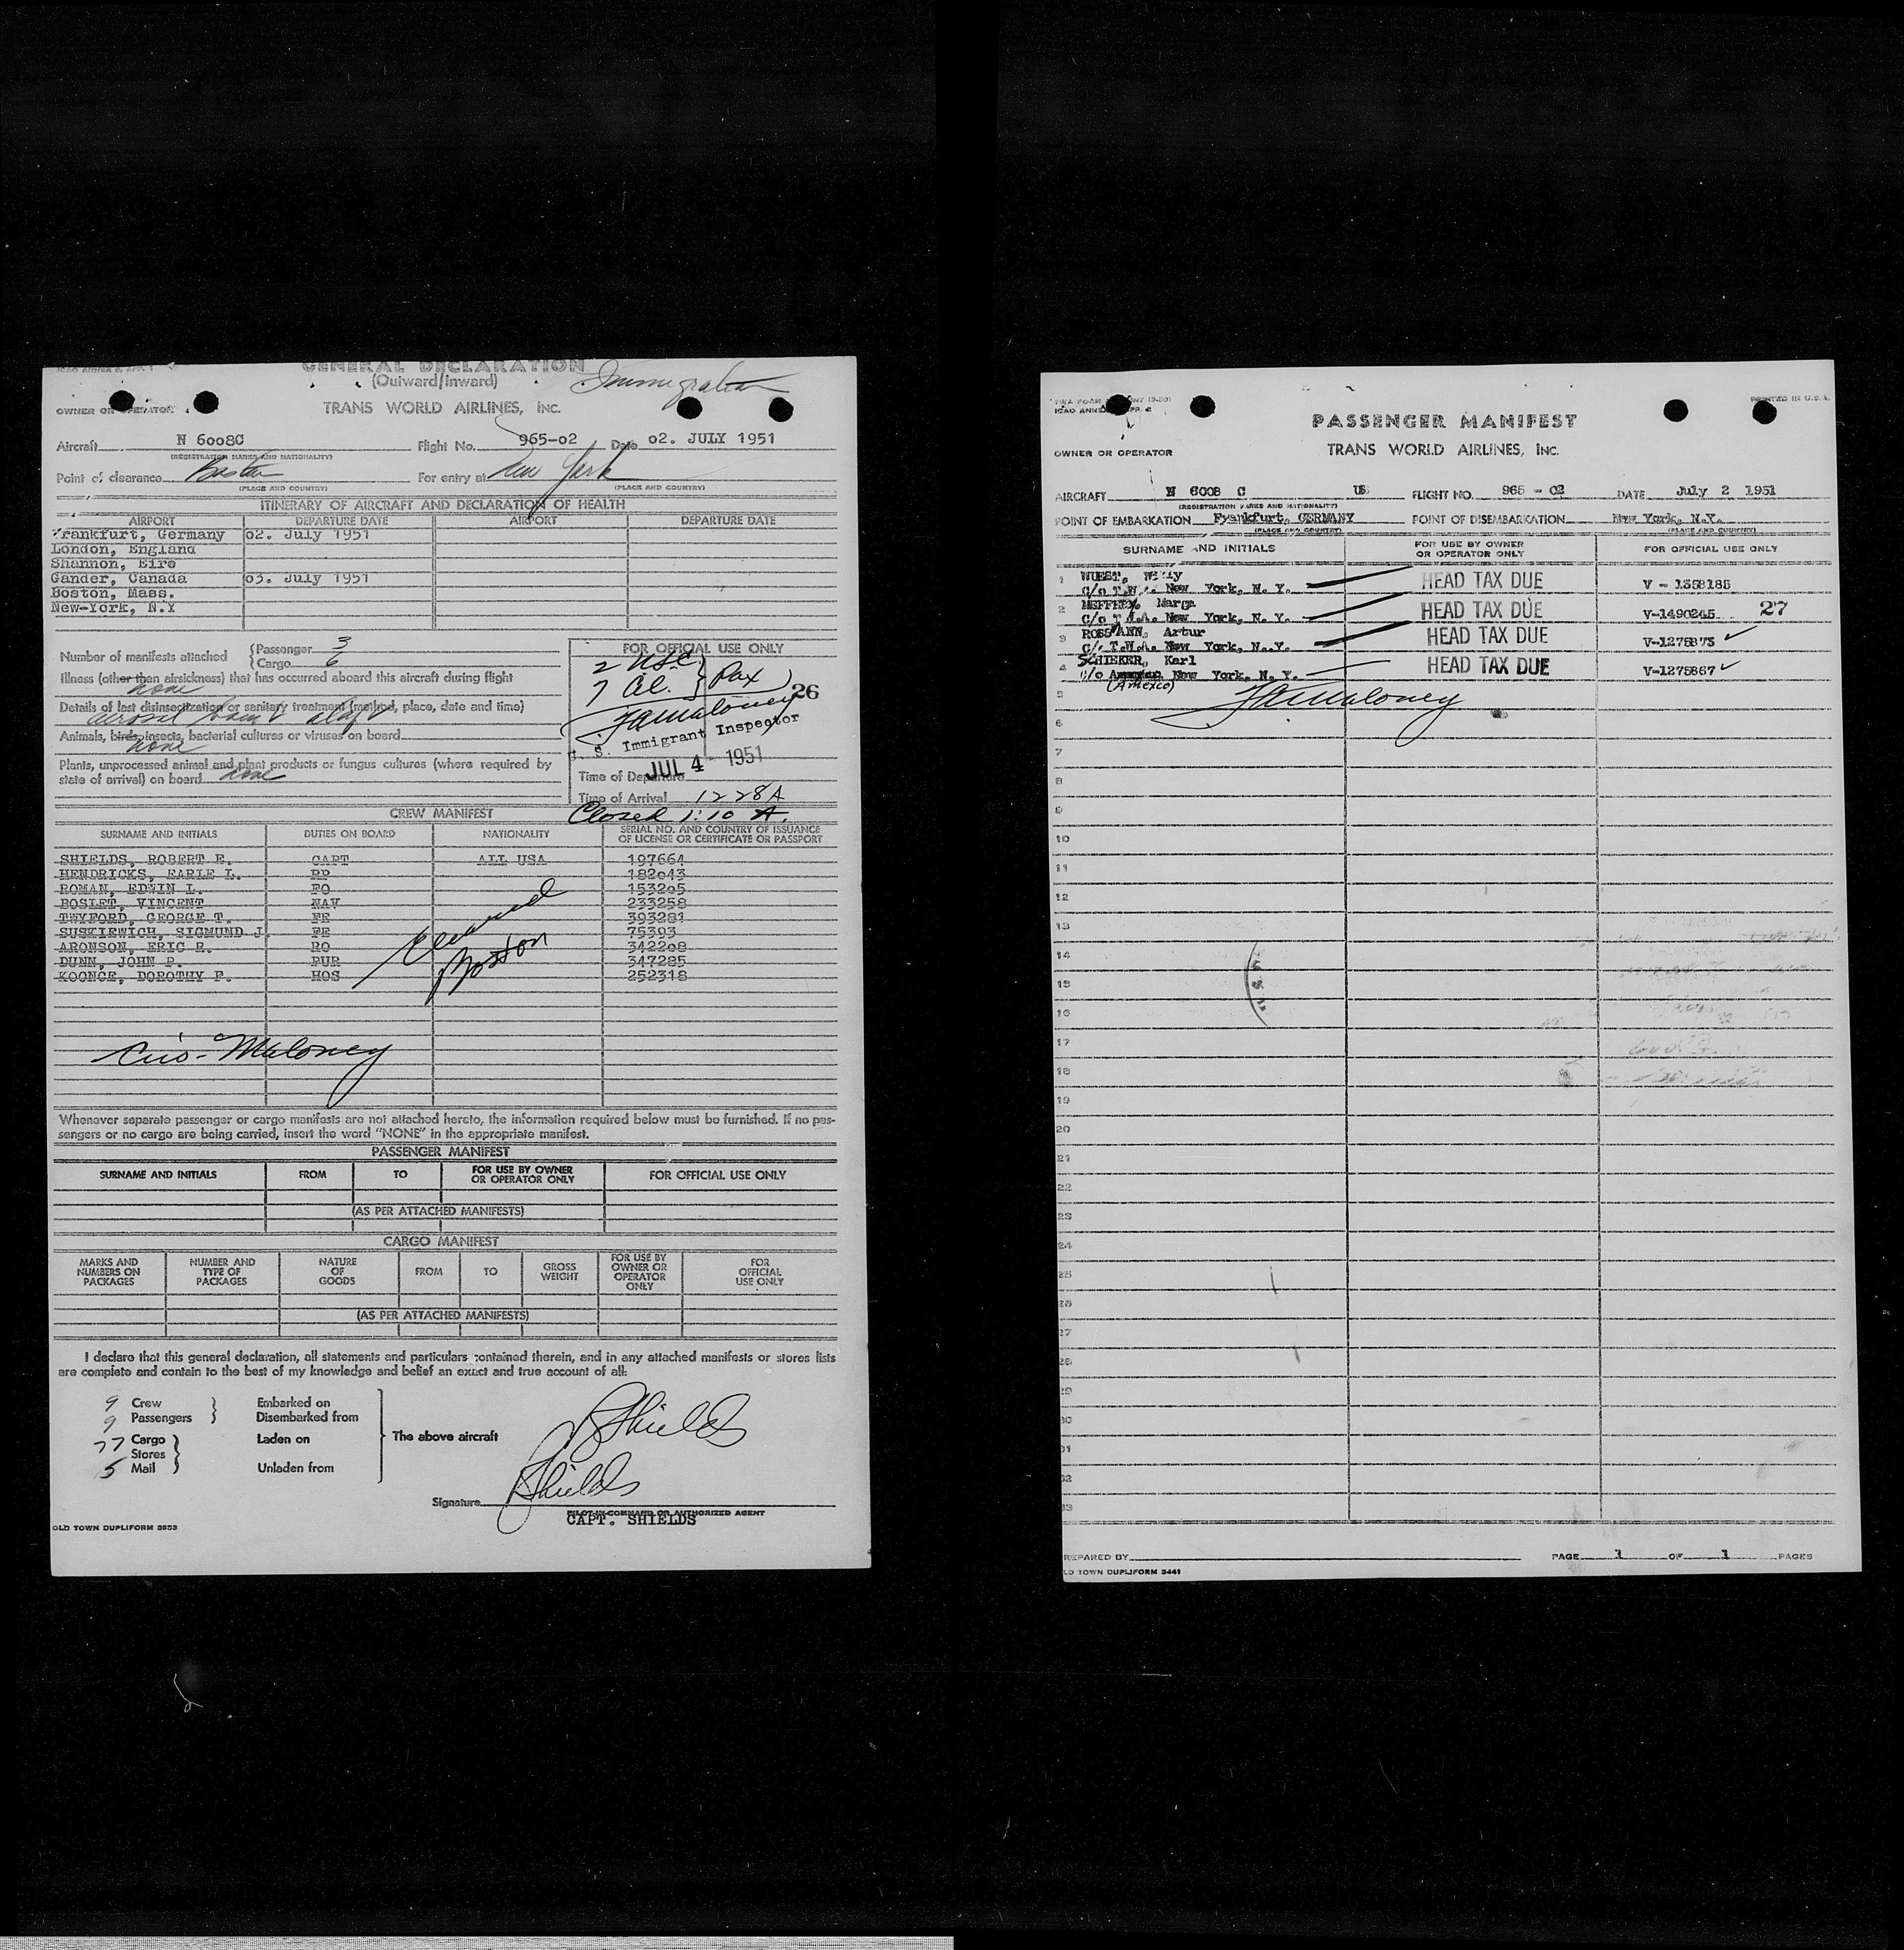 GENERAL DECLARATION
(Outward/Inward)
Immigration
OWNER OR OPERATOR
TRANS WORLD AIRLINES, INC.
Aircraft N 6008C Flight No. 965-02 Date 02. JULY 1951
(REGISTRATION MARKS AND NATIONALITY)
Point of clearance Boston For entry at New York
(PLACE AND COUNTRY) (PLACE AND COUNTRY)
ITINERARY OF AIRCRAFT AND DECLARATION OF HEALTH
AIRPORT DEPARTURE DATE AIRPORT DEPARTURE DATE
Frankfurt, Germany 02. July 1951
London, England
Shannon, Eire
Gander, Canada 03. July 1951
Boston, Mass.
New-York, N.Y
Number of manifests attached
Passenger 3
Cargo 6
Illness (other than airsickness) that has occurred aboard this aircraft during flight
none
Details of last disinsectization or sanitary treatment (method, place, date and time)
Animals, birds, insects, bacterial cultures or viruses on board
none
Plants, unprocessed animal and plant products or fungus cultures (where required by
state of arrival) on board none
FOR OFFICIAL USE ONLY
2 USC
7 Al. Pax
26
FAMaloney
U. S. Immigrant Inspector
JUL 4 1951
Time of Departure
Time of Arrival 12 28A
Closed 1:10 A.
CREW MANIFEST
SURNAME AND INITIALS DUTIES ON BOARD NATIONALITY SERIAL NO. AND COUNTRY OF ISSUANCE
OF LICENSE OR CERTIFICATE OR PASSPORT
SHIELDS, ROBERT E. CAPT ALL USA 197664
HENDRICKS, EARLE L. RP 182043
ROMAN, EDWIN L. FO 153205
BOSLET, VINCENT NAV 233258
TWYFORD, GEORGE T. FE 393281
SUSKIEWICH, SIGMUND J. FE 75393
ARONSON, ERIC R. RO 342208
DUNN, JOHN P. PUR 347285
KOONCE, DOROTHY F. HOS 252318
Boston
Maloney
Whenever separate passenger or cargo manifests are not attached hereto, the information required below must be furnished. If no pas-
sengers or no cargo are being carried, insert the word "NONE" in the appropriate manifest.
PASSENGER MANIFEST
SURNAME AND INITIALS FROM TO FOR USE BY OWNER
OR OPERATOR ONLY FOR OFFICIAL USE ONLY
(AS PER ATTACHED MANIFESTS)
CARGO MANIFEST
MARKS AND
NUMBERS ON
PACKAGES
NUMBER AND
TYPE OF
PACKAGES
NATURE
OF
GOODS
FROM TO
GROSS
WEIGHT
FOR USE BY
OWNER OR
OPERATOR
ONLY
FOR
OFFICIAL
USE ONLY
(AS PER ATTACHED MANIFESTS)
I declare that this general declaration, all statements and particulars contained therein, and in any attached manifests or stores lists
are complete and contain to the best of my knowledge and belief an exact and true account of all:
9 Crew Embarked on
9 Passengers Disembarked from
77 Cargo Laden on The above aircraft
Stores
5 Mail Unladen from
RShields
RShields
Signature
PILOT-IN-COMMAND OR AUTHORIZED AGENT
CAPT. SHIELDS
OLD TOWN DUPLIFORM 3853
PRINTED IN U.S.A.
PASSENGER MANIFEST
TRANS WORLD AIRLINES, INC.
OWNER OR OPERATOR
AIRCRAFT N 6008 C US FLIGHT NO. 965 - 02 DATE July 2 1951
(REGISTRATION MARKS AND NATIONALITY)
POINT OF EMBARKATION Frankfurt, GERMANY POINT OF DISEMBARKATION New York, N.Y.
(PLACE AND COUNTRY) (PLACE AND COUNTRY)
SURNAME AND INITIALS FOR USE BY OWNER
OR OPERATOR ONLY FOR OFFICIAL USE ONLY
1 WUEST, Willy HEAD TAX DUE V - 1358185
c/o T.W.A. New York, N. Y.
2 Marga HEAD TAX DUE V-1490245 27
c/o T.W.A. New York, N. Y.
3 ROSSMANN, Artur HEAD TAX DUE V-1275873
c/o T.W.A. New York, N. Y.
4 SCHIEKER, Karl HEAD TAX DUE V-1275867
c/o New York, N. Y.
(Amexco)
FAMaloney
5
6
7
8
9
10
11
12
13
14
15
16
17
18
19
20
21
22
23
24
25
26
27
28
29
30
31
32
33
PREPARED BY PAGE 1 OF 1 PAGES
OLD TOWN DUPLIFORM 3441